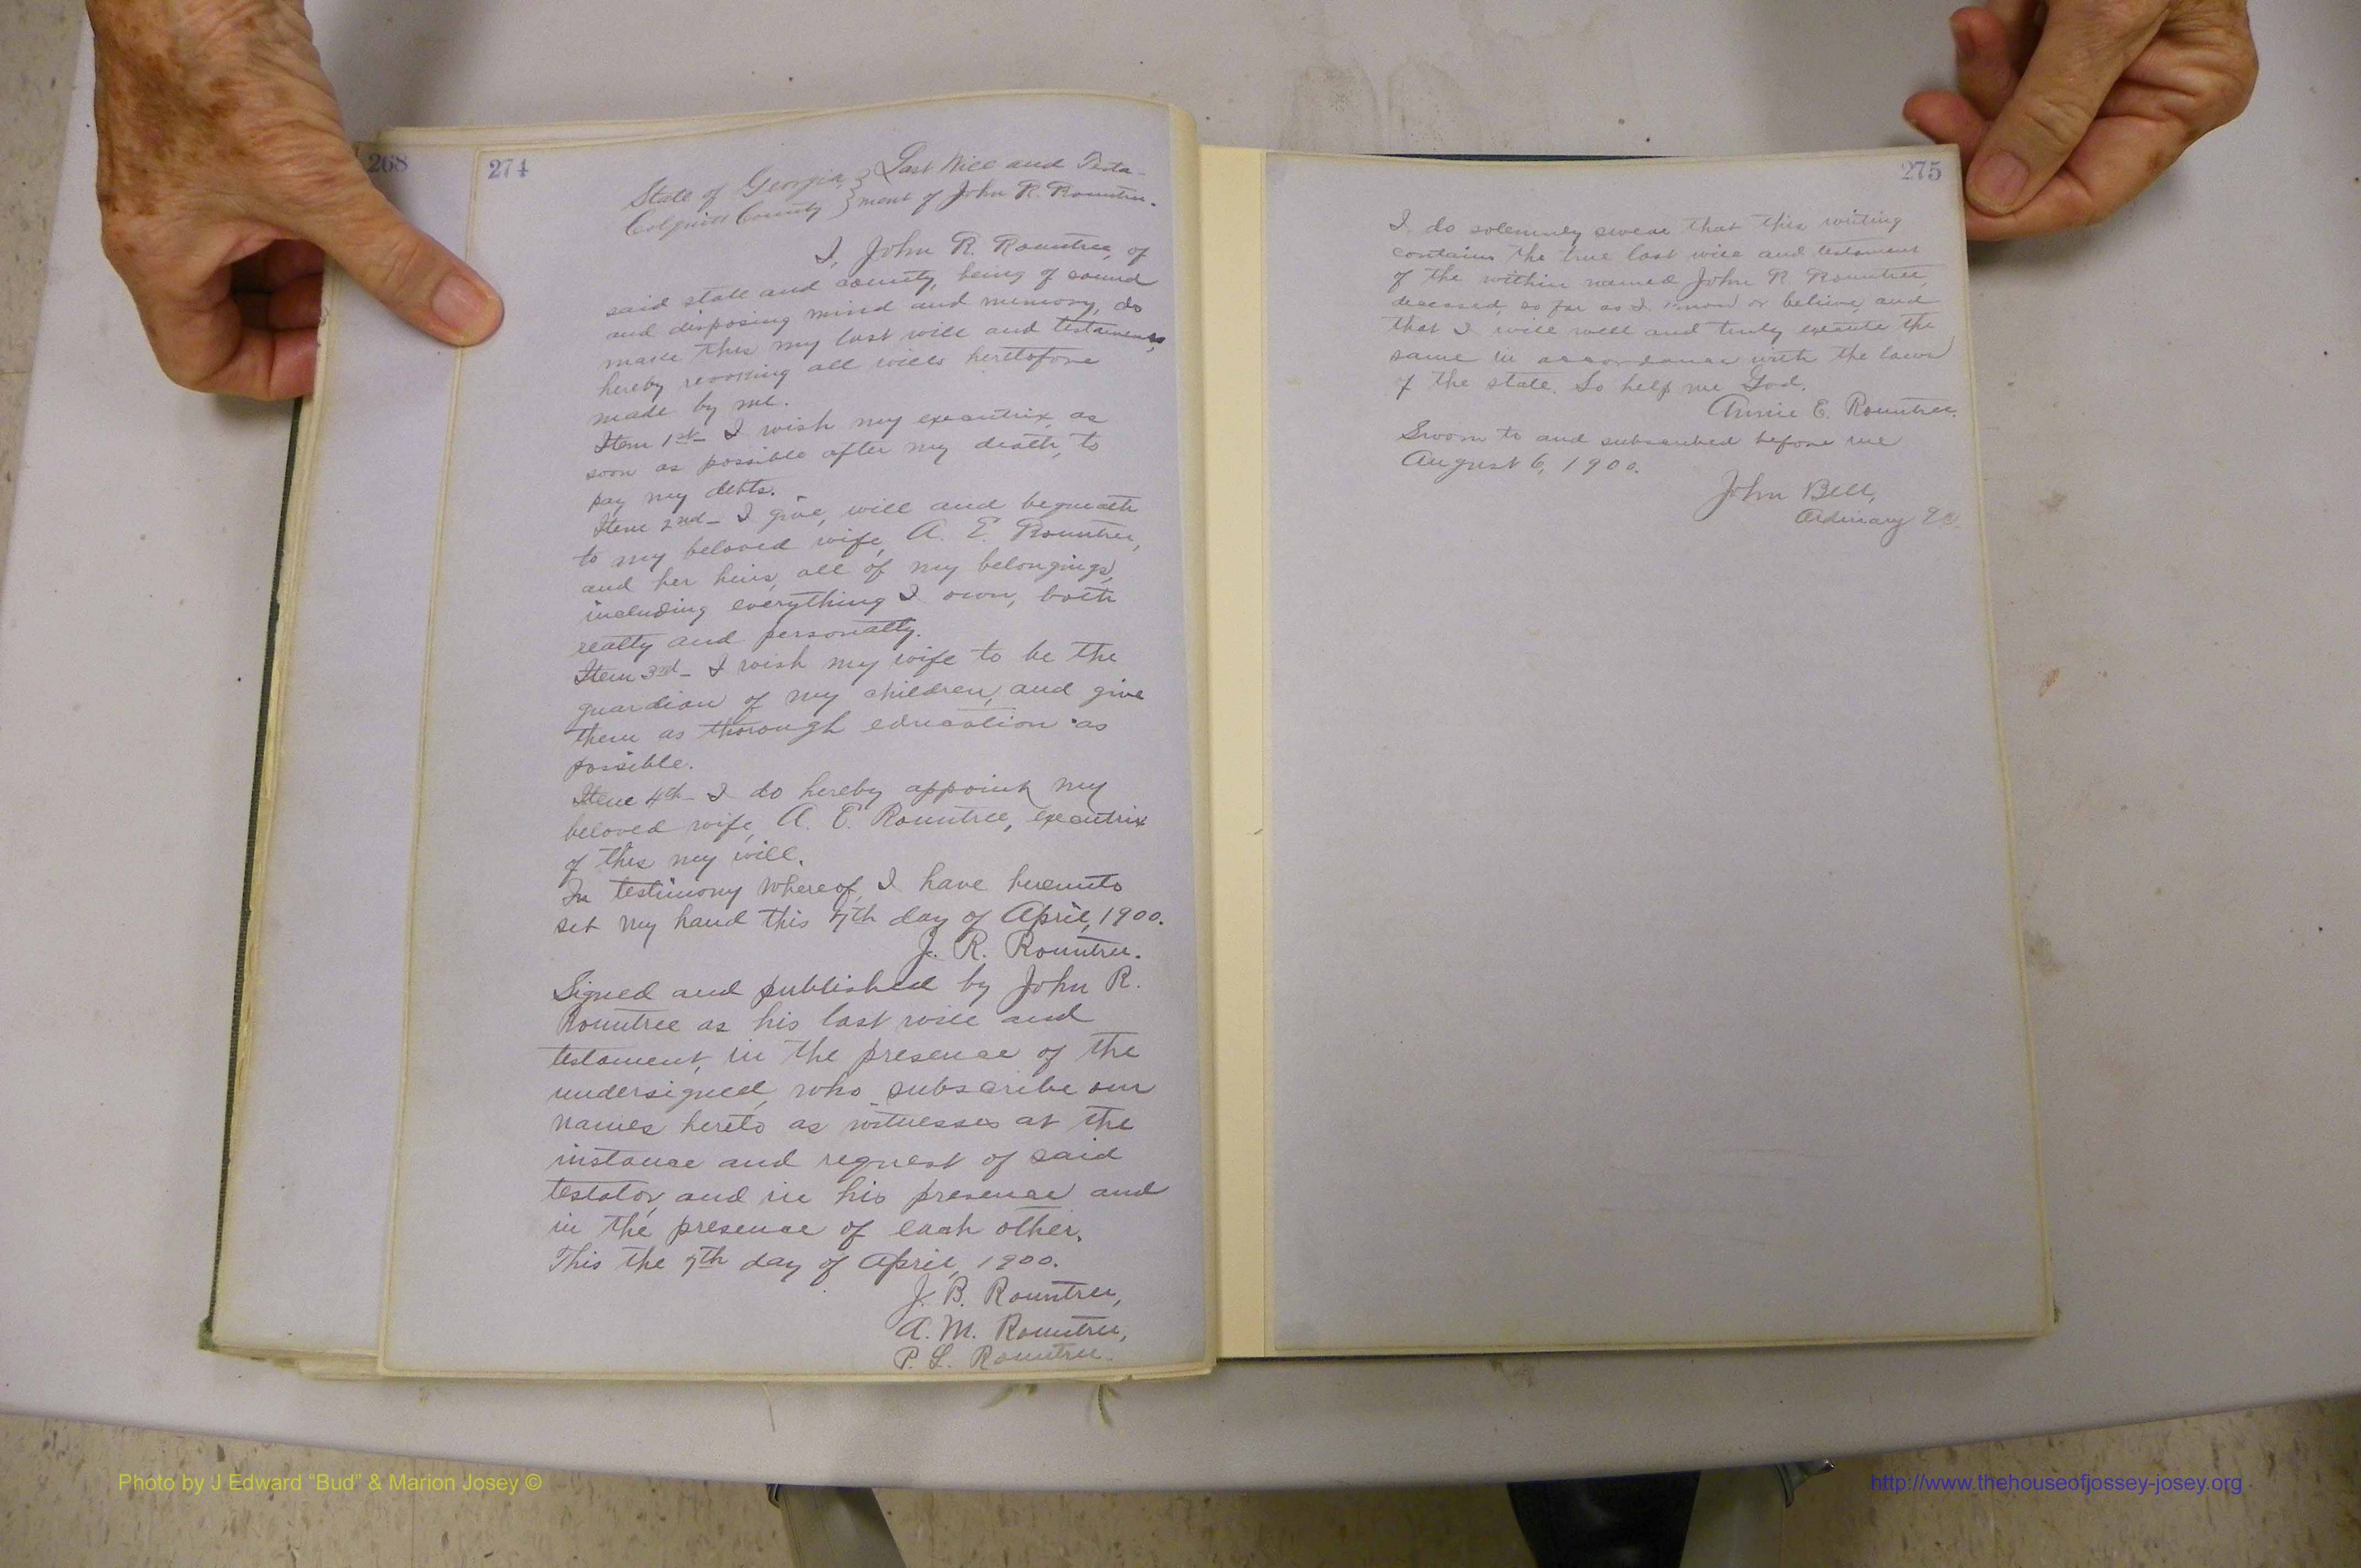 268
274
State of Georgia, } Last Will and Testa-
Colquitt County } ment of John R. Rountree.
I, John R. Rountree, of
said state and county, being of sound
and disposing mind and memory, do
make this my last will and testament,
hereby revoking all wills heretofore
made by me.
Item 1st- I wish my executrix, as
soon as possible after my death, to
pay my debts.
Item 2nd- I give, will and bequeath
to my beloved wife, A. E. Rountree,
and her heirs, all of my belongings,
including everything I own, both
realty and personalty.
Item 3rd- I wish my wife to be the
guardian of my children, and give
them as thorough education as
possible.
Item 4th- I do hereby appoint my
beloved wife, A. E. Rountree, executrix
of this my will.
In testimony whereof, I have hereunto
set my hand this 7th day of April, 1900.
J. R. Rountree.
Signed and published by John R.
Rountree as his last will and
testament, in the presence of the
undersigned, who subscribe our
names hereto as witnesses at the
instance and request of said
testator, and in his presence and
in the presence of each other.
This the 7th day of April, 1900.
J. B. Rountree,
A. M. Rountree,
P. L. Rountree.
275
I do solemnly swear that this writing
contains the true last will and testament
of the within named John R. Rountree,
decessed, so far as I know or believe, and
that I will well and truly execute the
same in accordance with the laws
of the state. So help me God.
Annie E. Rountree.
Sworn to and subscribed before me
August 6, 1900.
John Bell,
Ordinary
Photo by J Edward “Bud” & Marion Josey ©
http://www.thehouseofjossey-josey.org